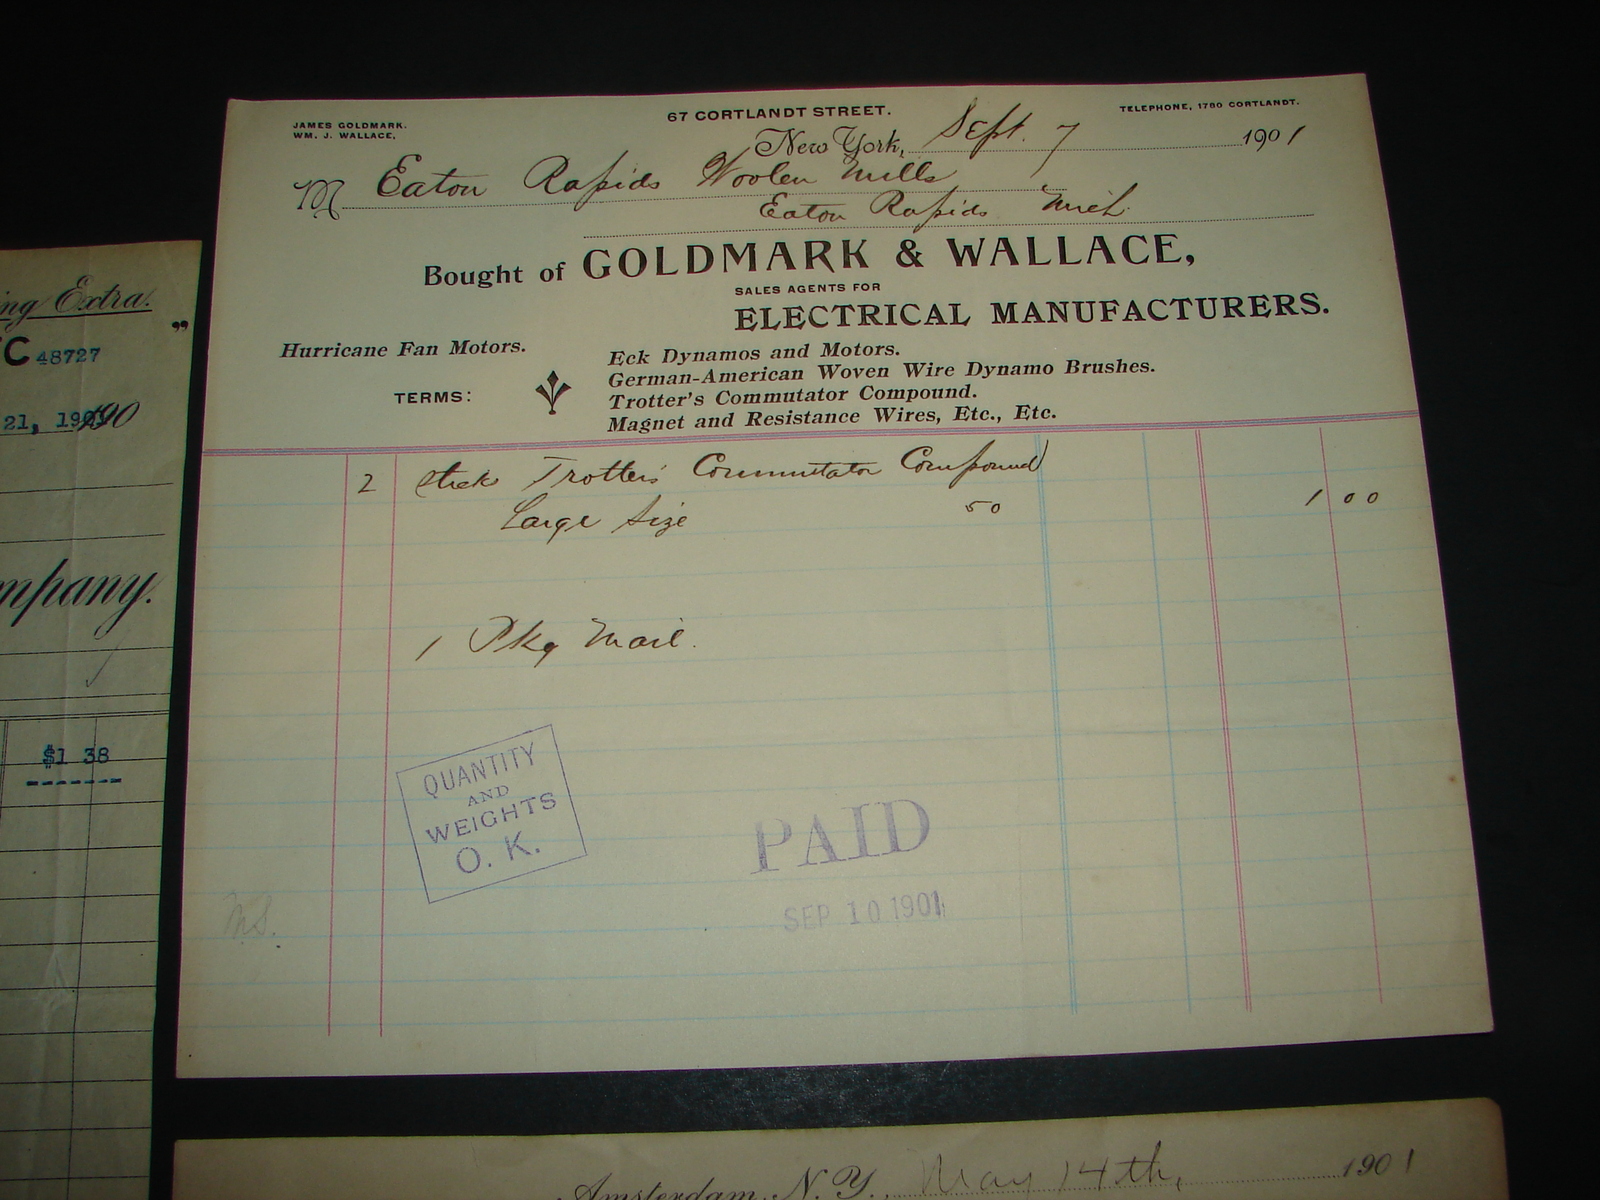 JAMES GOLDMARK.
WM. J. WALLACE.
67 CORTLANDT STREET.
TELEPHONE, 1780 CORTLANDT.
New York, Sept. 7 1901
M Eaton Rapids Woolen Mills
Eaton Rapids Mich.
Bought of GOLDMARK & WALLACE,
SALES AGENTS FOR
ELECTRICAL MANUFACTURERS.
Hurricane Fan Motors.
TERMS:
Eck Dynamos and Motors.
German-American Woven Wire Dynamo Brushes.
Trotter's Commutator Compound.
Magnet and Resistance Wires, Etc., Etc.
2 sticks Trotters Commutator Compound
Large Size 50 1 00
1 Pkg Mail.
QUANTITY
AND
WEIGHTS
O. K.
PAID
SEP 10 1901
M.S.
ng Extra.
"
C 48727
21, 190
mpany.
$1 38
Amsterdam, N.Y., May 14th, 1901